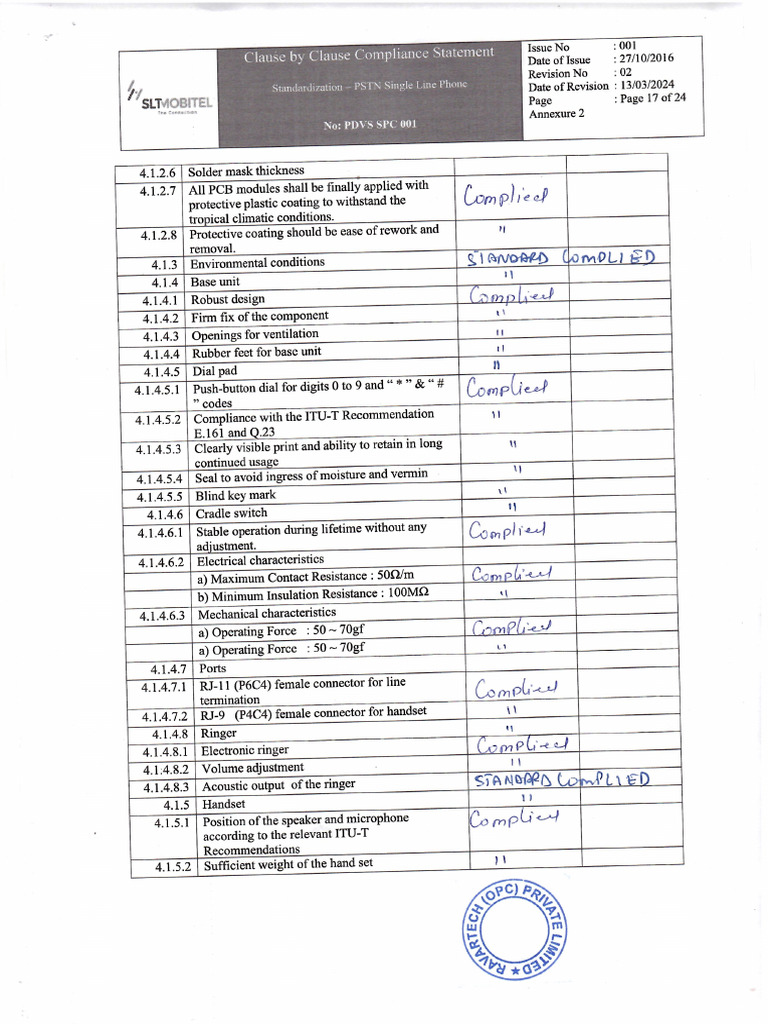 SLTMOBITEL
The Connection
Clause by Clause Compliance Statement
Standardization – PSTN Single Line Phone
No: PDVS SPC 001
Issue No : 001
Date of Issue : 27/10/2016
Revision No : 02
Date of Revision : 13/03/2024
Page : Page 17 of 24
Annexure 2
4.1.2.6 Solder mask thickness
4.1.2.7 All PCB modules shall be finally applied with Complied
protective plastic coating to withstand the
tropical climatic conditions.
4.1.2.8 Protective coating should be ease of rework and "
removal.
4.1.3 Environmental conditions STANDARD COMPLIED
4.1.4 Base unit "
4.1.4.1 Robust design Complied
4.1.4.2 Firm fix of the component "
4.1.4.3 Openings for ventilation "
4.1.4.4 Rubber feet for base unit "
4.1.4.5 Dial pad "
4.1.4.5.1 Push-button dial for digits 0 to 9 and “ * ” & “ # Complied
” codes
4.1.4.5.2 Compliance with the ITU-T Recommendation "
E.161 and Q.23
4.1.4.5.3 Clearly visible print and ability to retain in long "
continued usage
4.1.4.5.4 Seal to avoid ingress of moisture and vermin "
4.1.4.5.5 Blind key mark "
4.1.4.6 Cradle switch "
4.1.4.6.1 Stable operation during lifetime without any Complied
adjustment.
4.1.4.6.2 Electrical characteristics
a) Maximum Contact Resistance : 50Ω/m Complied
b) Minimum Insulation Resistance : 100MΩ "
4.1.4.6.3 Mechanical characteristics
a) Operating Force : 50 ~ 70gf Complied
a) Operating Force : 50 ~ 70gf "
4.1.4.7 Ports
4.1.4.7.1 RJ-11 (P6C4) female connector for line Complied
termination
4.1.4.7.2 RJ-9 (P4C4) female connector for handset "
4.1.4.8 Ringer "
4.1.4.8.1 Electronic ringer Complied
4.1.4.8.2 Volume adjustment "
4.1.4.8.3 Acoustic output of the ringer STANDARD COMPLIED
4.1.5 Handset "
4.1.5.1 Position of the speaker and microphone Complied
according to the relevant ITU-T
Recommendations
4.1.5.2 Sufficient weight of the hand set "
RAVARTECH (OPC) PRIVATE LIMITED ★